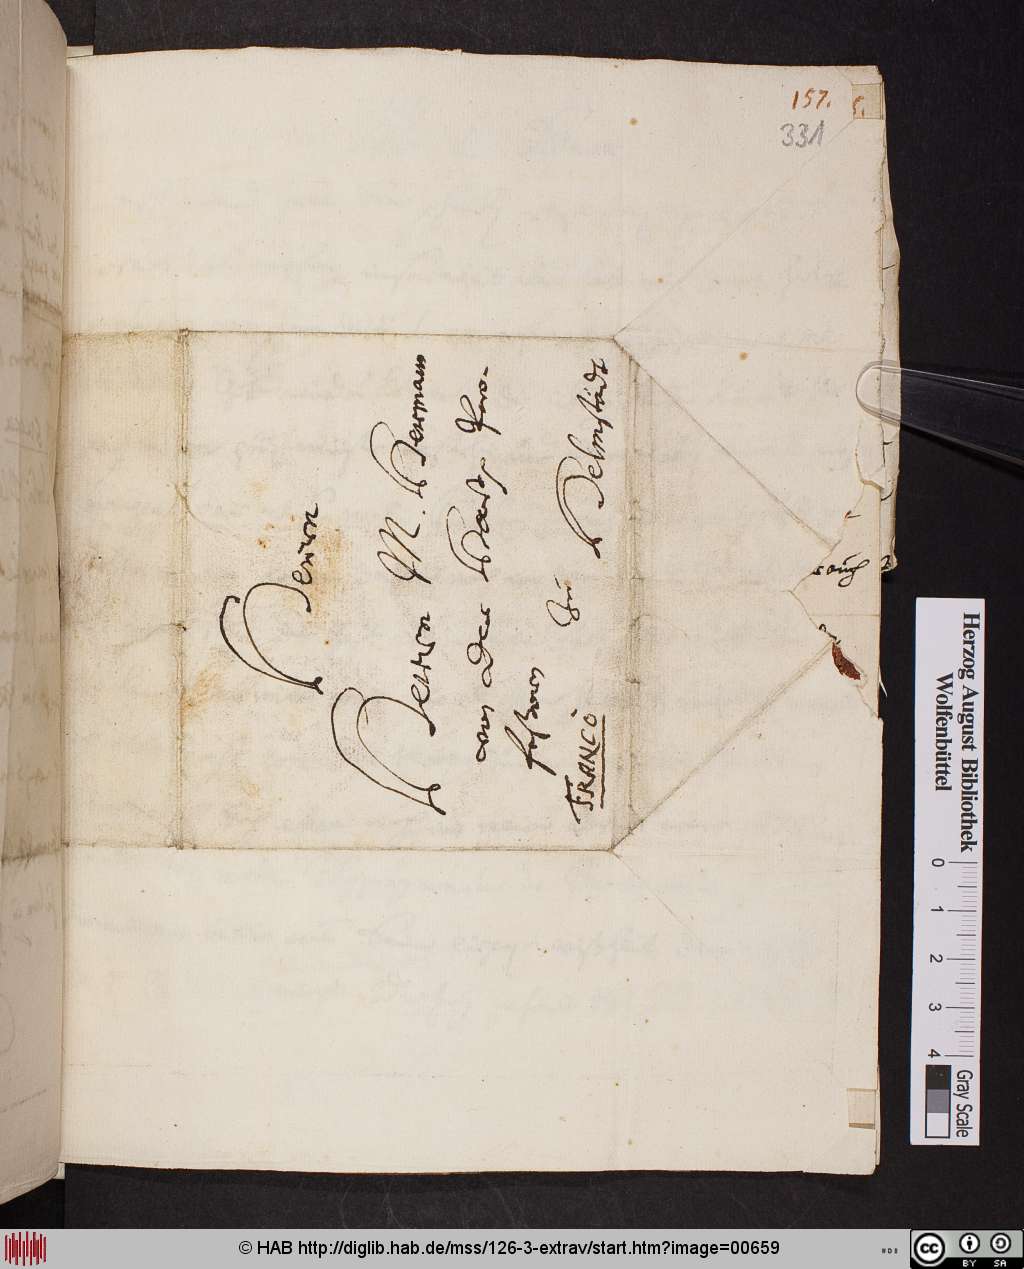 157.
331
5.
Herrn
Herrn M. Hermann
von der Hardt, Pro-
feßorn zu Helmstädt
FRANCÒ
auch
Herzog August Bibliothek
Wolfenbüttel
0 1 2 3 4
Gray Scale
© HAB http://diglib.hab.de/mss/126-3-extrav/start.htm?image=00659
cc BY SA